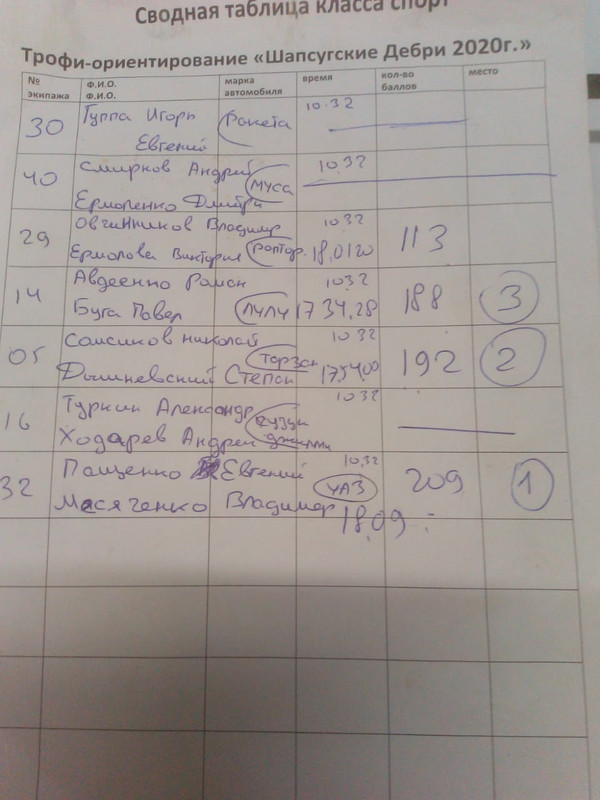 Сводная таблица класса спорт
Трофи-ориентирование «Шапсугские Дебри 2020г.»
№ экипажа Ф.И.О. Ф.И.О. марка автомобиля время кол-во баллов место
30 Гуппа Игорь Ракета 10.32
Евгений
40 Смирнов Андрей 10.32
Ермоленко Дмитрий Муса
29 Овчинников Владимир 10 32 113
Ермолова Виктория Раптор 18,01 20
14 Авдеенко Роман 10 32 188 3
Буга Павел Лулу 17 34,28
05 Николай 10 32 192 2
Степан Тарзан 17,54,00
16 Туркин Александр 10 32
Ходарев Андрей
32 Пащенко Евгений УАЗ 10,32 209 1
Масяченко Владимир 18,09 :